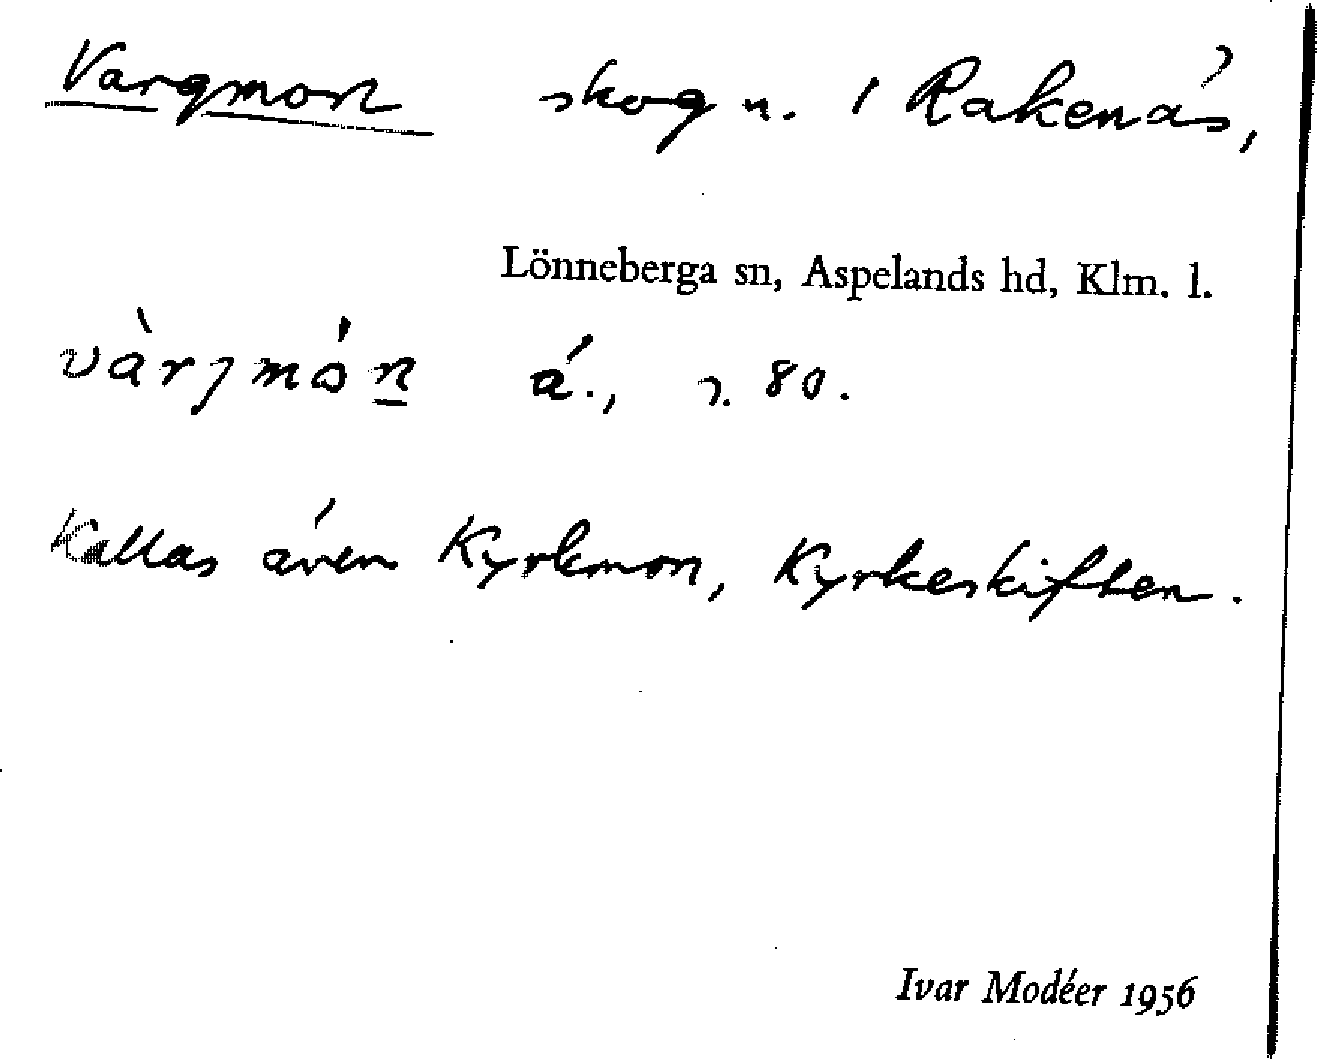 Vargmon skog n. i Rakenäs,
Lönneberga sn, Aspelands hd, Klm. l.
vàrjmón ä., 80.
Kallas även Kyrkmon, Kyrkeskiften.
Ivar Modéer 1956